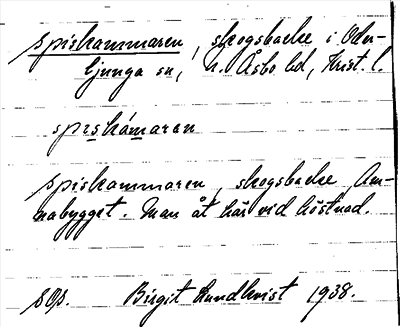 spiskammaren, skogsbacke i Oder-
ljunga sn, N. Åsbo hd, Krist. l.
spiskámaran
spiskammaren, skogsbacke Am-
nabygget. Man åt här vid höstnad.
SOp. Birgit Lundkvist 1938.